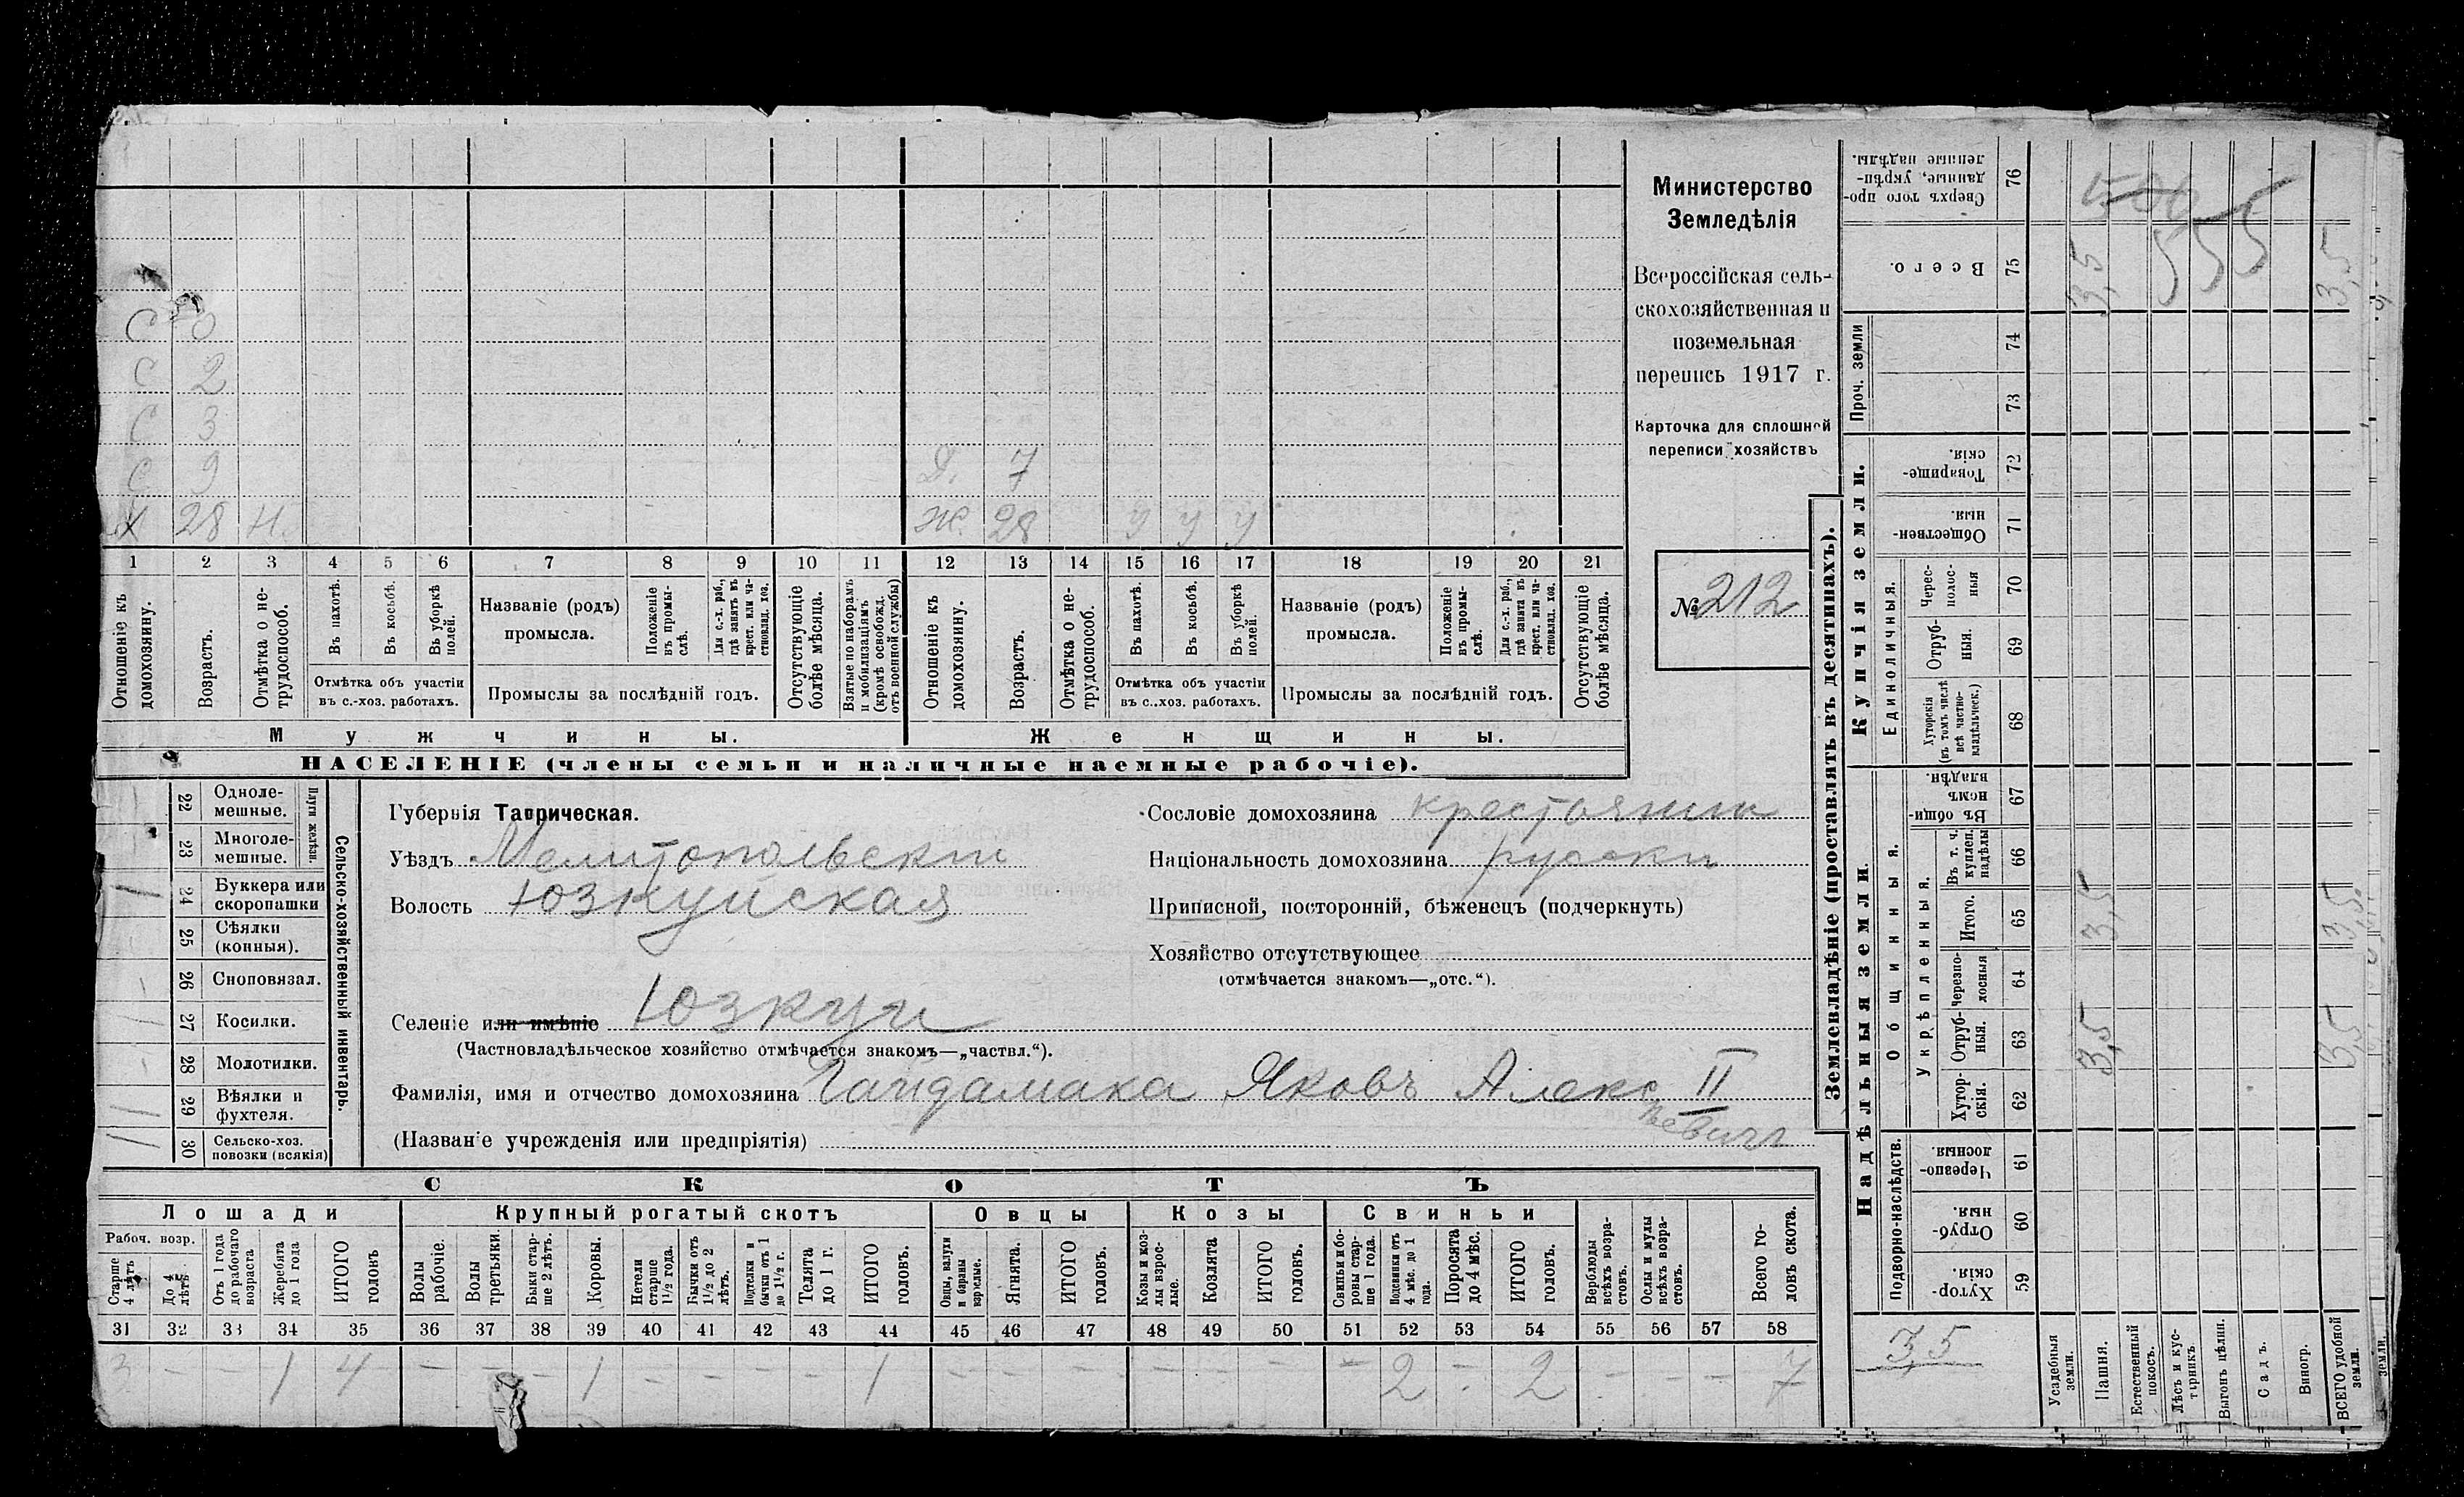 Министерство
Земледѣлія
Всероссійская сель-
скохозяйственная и
поземельная
перепись 1917 г.
Карточка для сплошной
переписи хозяйствъ
№ 212
С 0
С 2
С 3
С 9 Д. 7
Х 28 Н. Ж. 28 У У У
1 2 3 4 5 6 7 8 9 10 11 12 13 14 15 16 17 18 19 20 21
Отношеніе къ домохозяину.
Возрастъ.
Отмѣтка о не-трудоспособ.
Въ пахотѣ.
Въ косьбѣ.
Въ уборкѣ полей.
Отмѣтка объ участіи
въ с.-хоз. работахъ.
Названіе (родъ)
промысла.
Положеніе въ промы-слѣ.
Для с.-х. раб., гдѣ занятъ въ крест. или ча-стновлад. хоз.
Промыслы за послѣдній годъ.
Отсутствующіе болѣе мѣсяца.
Взятые по наборамъ и мобилизаціямъ (кромѣ освобожд. отъ военной службы)
Отношеніе къ домохозяину.
Возрастъ.
Отмѣтка о не-трудоспособ.
Въ пахотѣ.
Въ косьбѣ.
Въ уборкѣ полей.
Отмѣтка объ участіи
въ с..хоз. работахъ.
Названіе (родъ)
промысла.
Положеніе въ промы-слѣ.
Для с.-х. раб., гдѣ занята въ крест. или ча-стновлад. хоз.
Промыслы за послѣдній годъ.
Отсутствующіе болѣе мѣсяца.
Мужчины. Женщины.
НАСЕЛЕНІЕ (члены семьи и наличные наемные рабочіе).
Сельско-хозяйственный инвентарь.
Плуги желѣзн.
22 Одноле-мешные.
23 Многоле-мешные.
1 24 Буккера или скоропашки
25 Сѣялки (конныя).
- 26 Сноповязал.
1 27 Косилки.
- 28 Молотилки.
1 29 Вѣялки и фухтеля.
1 30 Сельско-хоз. повозки (всякія)
Губернія Таврическая.
Уѣздъ Мелитопольскій
Волость Юзкуйская
Селеніе или имѣніе Юзкуи
(Частновладѣльческое хозяйство отмѣчается знакомъ—„частвл.“).
Фамилія, имя и отчество домохозяина Гайдамака Яковъ Алексѣевичъ II
(Названіе учрежденія или предпріятія)
Сословіе домохозяина крестьянин
Національность домохозяина руски
Приписной, посторонній, бѣженецъ (подчеркнуть)
Хозяйство отсутствующее
(отмѣчается знакомъ—„отс.“).
СКОТЪ
Лошади Крупный рогатый скотъ Овцы Козы Свиньи
Рабоч. возр.
Старше 4 лѣтъ
До 4 лѣтъ
Отъ 1 года до рабочаго возраста
Жеребята до 1 года
ИТОГО головъ
Волы рабочіе.
Волы третьяки.
Быки стар-ше 2 лѣтъ.
Коровы.
Нетели старше 1½ года.
Бычки отъ 1½ до 2 лѣтъ.
Подтелки и бычки отъ 1 до 1½ г.
Телята до 1 г.
ИТОГО головъ.
Овцы, валухи и бараны взрослые.
Ягнята.
ИТОГО головъ.
Козы и коз-лы взрос-лые.
Козлята
ИТОГО головъ.
Свиньи и бо-ровы стар-ше 1 года.
Подсвинки отъ 4 мѣс. до 1 года.
Поросята до 4 мѣс.
ИТОГО головъ.
Верблюды всѣхъ возра-стовъ.
Ослы и мулы всѣхъ возра-стовъ.
Всего го-ловъ скота.
31 32 33 34 35 36 37 38 39 40 41 42 43 44 45 46 47 48 49 50 51 52 53 54 55 56 57 58
3 - - 1 4 - - - 1 - - - - 1 - - - - - - - 2 - 2 - - - 7
Землевладѣніе (проставлять въ десятинахъ).
Купчія земли.
Надѣльныя земли.
Проч. земли
Единоличныя.
Общинныя.
Укрѣпленныя.
Подворно-наслѣдств.
Сверхъ того про-данные, укрѣп-ленные надѣлы. 76
Всего. 75
74
73
Товарище-скія. 72
Обществен-ныя. 71
Черес-полос-ныя 70
Отруб-ныя. 69
Хуторскія (въ томъ числѣ всѣ частно-владѣльческ.) 68
Въ общи-номъ владѣн. 67
Въ т. ч. куплен. надѣлы 66
Итого. 65
Черезпо-лосныя 64
Отруб-ныя. 63
Хутор-скія. 62
Черезпо-лосныя. 61
Отруб-ныя. 60
Хутор-скія. 59
500
555
3,5 3,5
3,5 3,5
3,5 3,5
3,5
Усадебныя земли.
Пашня.
Естественный покосъ.
Лѣсъ и кус-тарникъ
Выгонъ цѣлин.
Садъ.
Виногр.
ВСЕГО удобной земли.
земли.